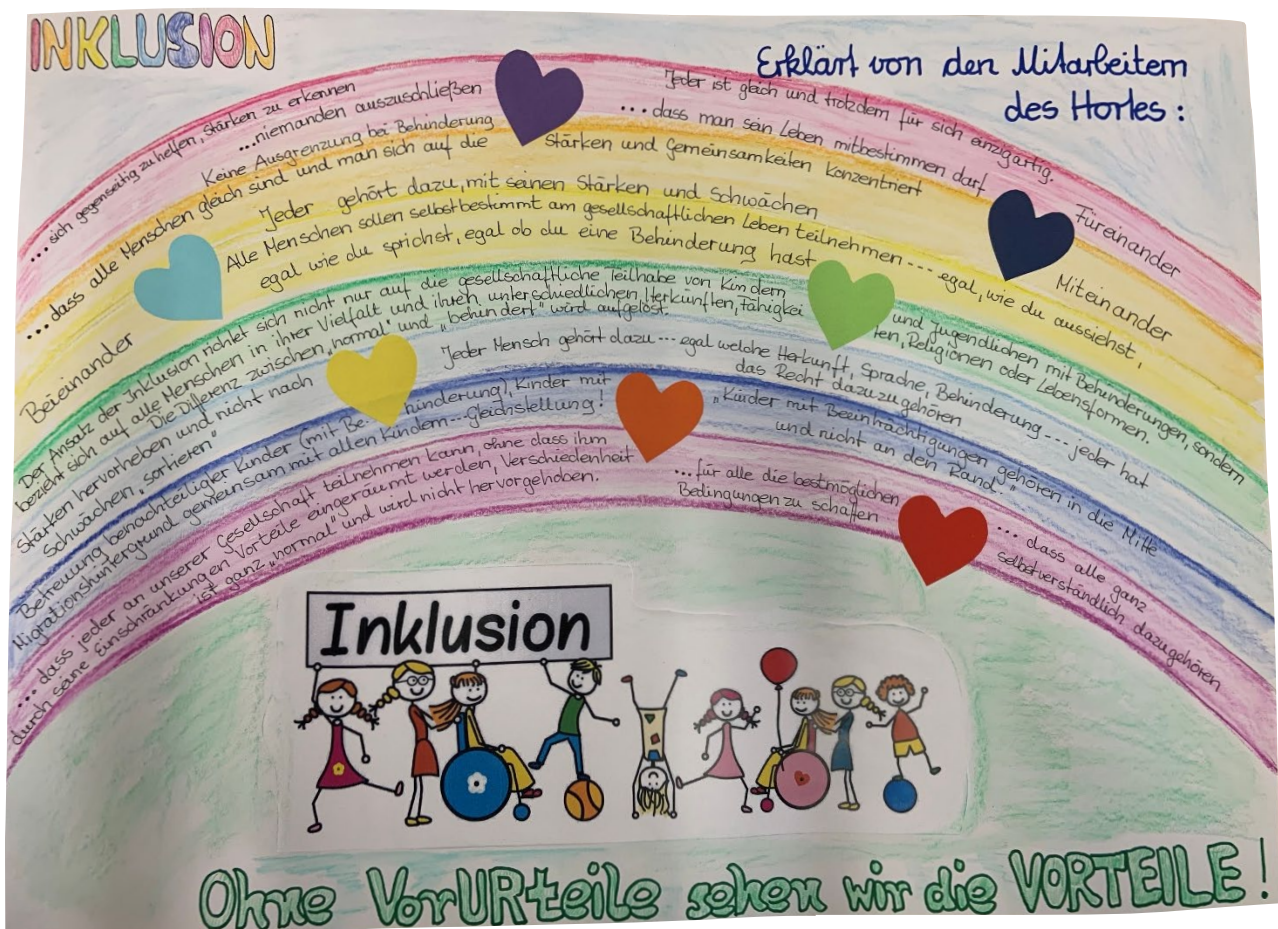 INKLUSION
Erklärt von den Mitarbeitern
des Hortes :
... sich gegenseitig zu helfen, Stärken zu erkennen
...niemanden auszuschließen
Jeder ist gleich und trotzdem für sich einzigartig.
... dass man sein Leben mitbestimmen darf
Keine Ausgrenzung bei Behinderung
... dass alle Menschen gleich sind und man sich auf die Stärken und Gemeinsamkeiten konzentriert
Füreinander
Miteinander
Beieinander
Jeder gehört dazu, mit seinen Stärken und Schwächen
Alle Menschen sollen selbstbestimmt am gesellschaftlichen Leben teilnehmen --- egal, wie du aussiehst,
egal wie du sprichst, egal ob du eine Behinderung hast
Der Ansatz der Inklusion richtet sich nicht nur auf die gesellschaftliche Teilhabe von Kindern und Jugendlichen mit Behinderungen, sondern
bezieht sich auf alle Menschen in ihrer Vielfalt und ihren unterschiedlichen Herkünften, Fähigkei ten, Religionen oder Lebensformen.
Die Differenz zwischen „normal" und „behindert" wird aufgelöst.
Stärken hervorheben und nicht nach
Schwächen „sortieren"
Jeder Mensch gehört dazu --- egal welche Herkunft, Sprache, Behinderung --- jeder hat
das Recht dazuzugehören
Betreuung benachteiligter Kinder (mit Be- hinderung), Kinder mit
Migrationshintergrund gemeinsam mit allen Kindern -- Gleichstellung!
„Kinder mit Beeinträchtigungen gehören in die Mitte
und nicht an den Rand."
... dass jeder an unserer Gesellschaft teilnehmen kann, ohne dass ihm
durch seine Einschränkungen Vorteile eingeräumt werden, Verschiedenheit
ist ganz „normal" und wird nicht hervorgehoben.
... für alle die bestmöglichen
Bedingungen zu schaffen
... dass alle ganz
selbstverständlich dazugehören
Inklusion
Ohne VorURteile sehen wir die VORTEILE!